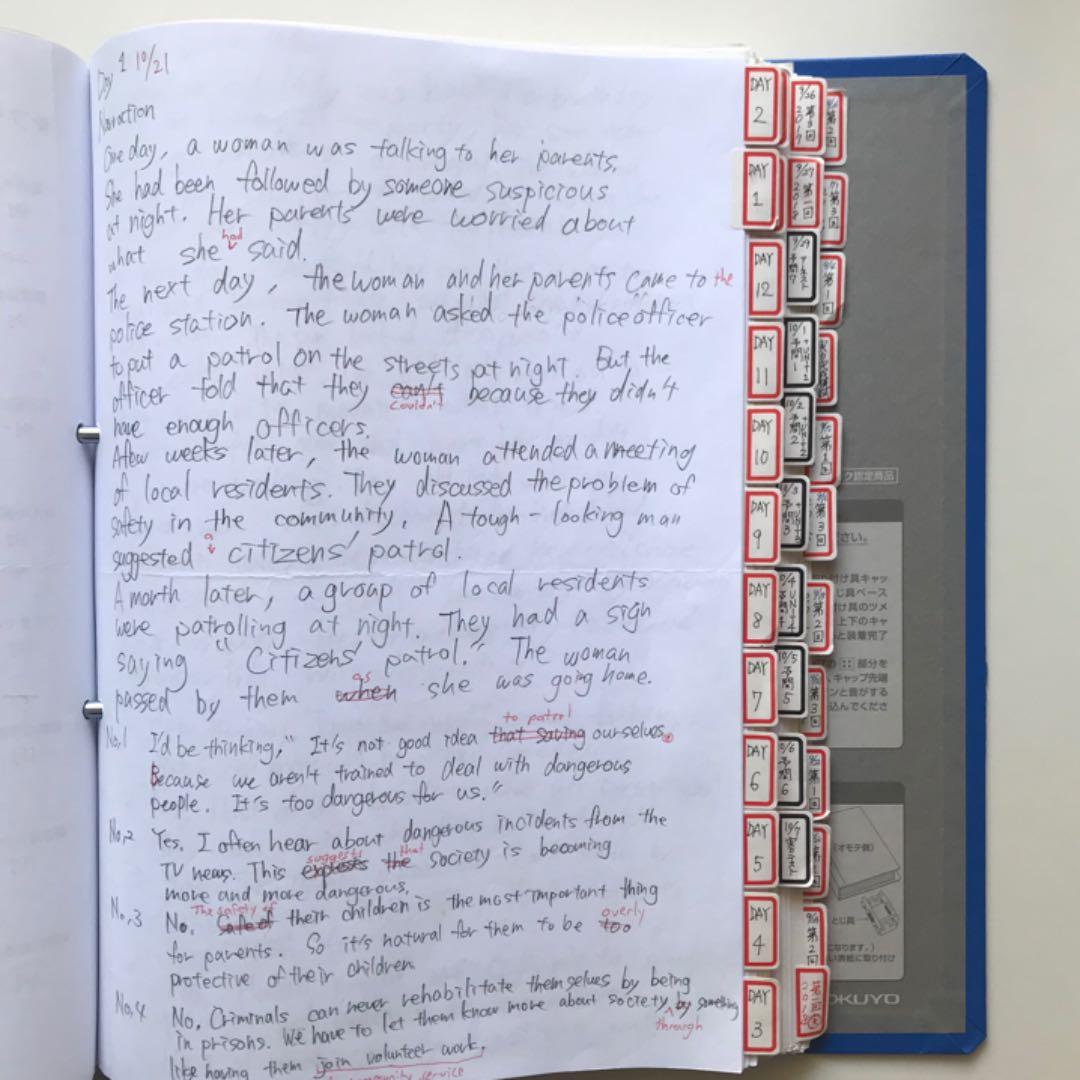 Day 1 10/21
Narration
One day, a woman was talking to her parents.
She had been followed by someone suspicious
at night. Her parents were worried about
had
what she said.
The next day, the woman and her parents came to the
police station. The woman asked the police officer
to put a patrol on the streets at night. But the
officer told that they can't because they didn't
couldn't
have enough officers.
A few weeks later, the woman attended a meeting
of local residents. They discussed the problem of
safety in the community. A tough-looking man
a
suggested citizens' patrol.
A month later, a group of local residents
were patrolling at night. They had a sign
saying "Citizens' patrol." The woman
as
passed by them when she was going home.
to patrol
No,1 I'd be thinking, "It's not good idea that saving ourselves.
Because we aren't trained to deal with dangerous
people. It's too dangerous for us."
No,2 Yes. I often hear about dangerous incidents from the
TV news. This society is becoming
suggests that
more and more dangerous.
The safety of
No,3 No. their children is the most important thing
overly
for parents. So it's natural for them to be too
protective of their children
No,4 No. Criminals can never rehabilitate themselves by being
in prisons. We have to let them know more about society by something
through
like having them join volunteer work.
community service
DAY 2
DAY 1
DAY 12
DAY 11
DAY 10
DAY 9
DAY 8
DAY 7
DAY 6
DAY 5
DAY 4
DAY 3
ク認定商品
ださい。
付け具キャッ
じ具ベース
け具のツメ
上下のキャ
と装着完了
部分を
キャップ先端
ンと音がする
込んでくださ
(オモテ側)
とじ具
になります。)
い表紙に取り付け
KOKUYO